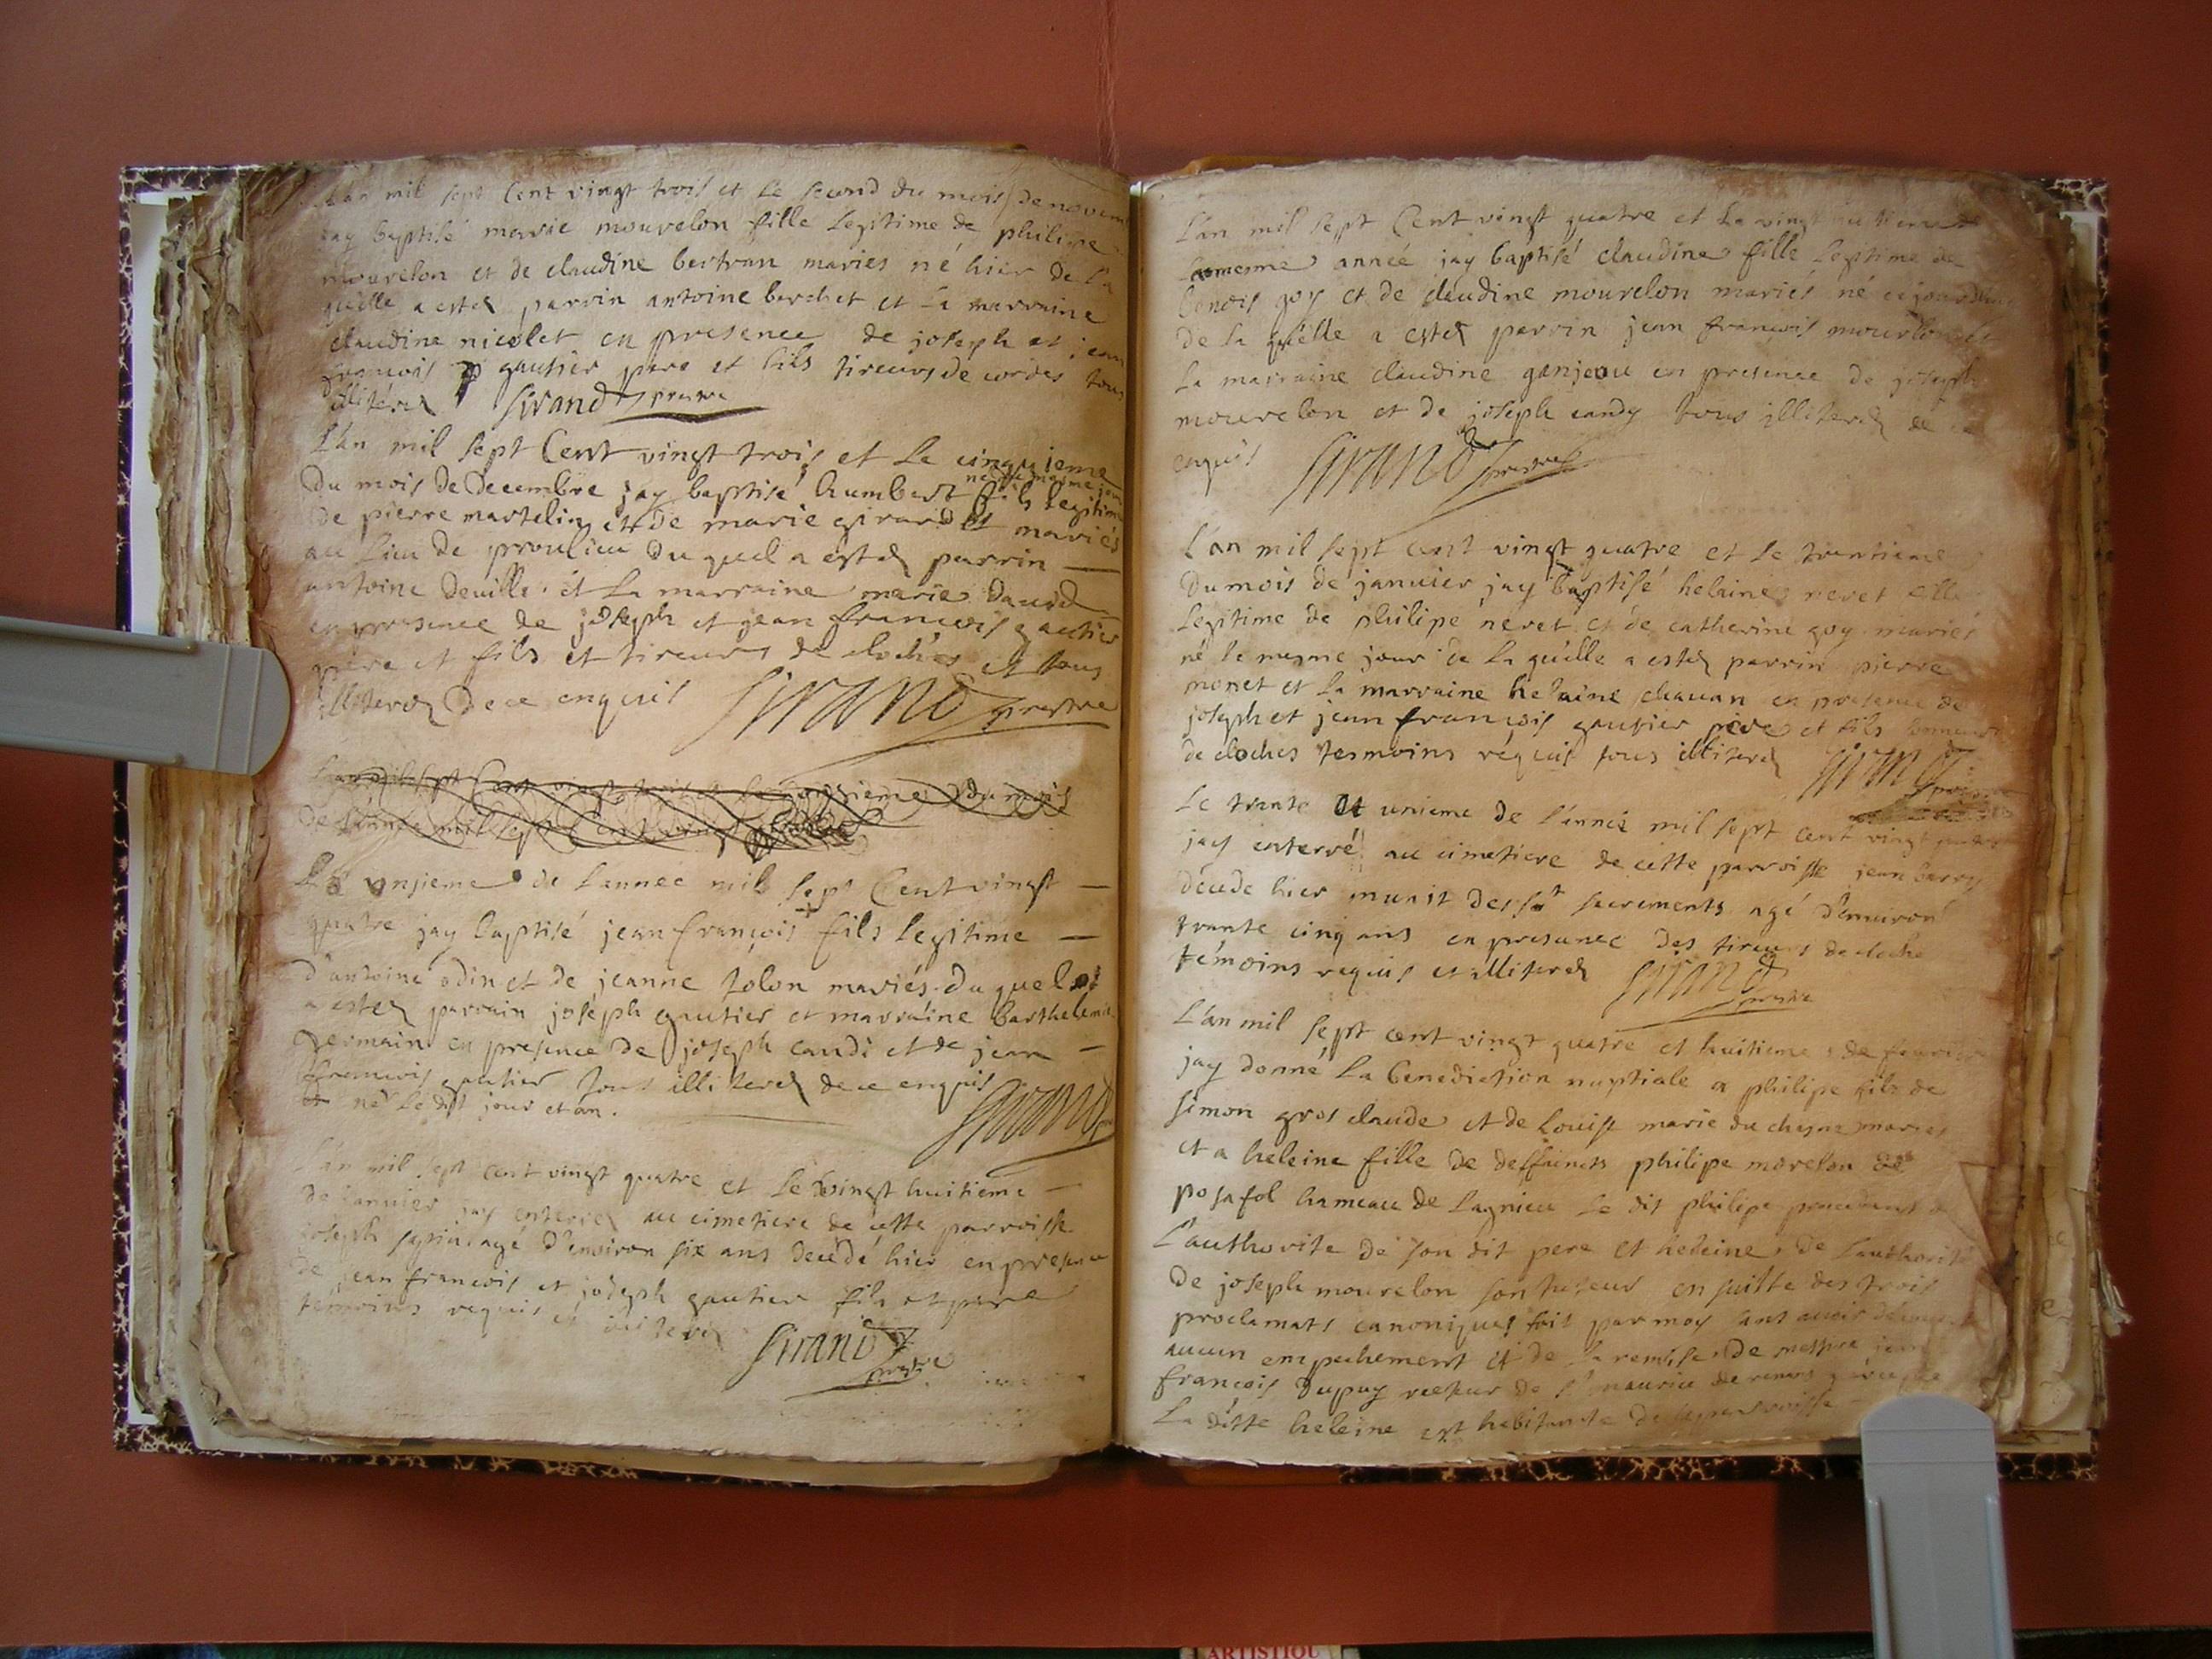 L'an mil sept Cent vingt trois et le second du mois de novem
jay baptisé marie mourelon fille legitime de philipe
mourelon et de claudine bertran maries né hier de la
quelle a estez parrin antoine berchet et la marraine
claudine nicolet en presence de joseph et jean
francois gautier pere et fils tireurs de cordes tous
illiterez Sirand prestre
L'an mil sept Cent vingt trois et le cinquieme
né le mesme jour
du mois de Decembre jay baptisé humbert fils legitime
de pierre martelin et de marie girardet mariés
au lieu de proulieu du quel a estez parrin
antoine deuille et la marraine marie David
en presence de joseph et jean francois gautier
père et fils et tireurs de cloches et tous
illiterez de ce enquis Sirand prestre
L'an mil sept Cent vingt trois et le onzieme du mois
de l'année mil sept Cent vingt
Le onjieme de l'annee mil sept Cent vingt
quatre jay baptisé jean françois fils legitime
d'antoine odin et de jeanne tolon mariés du quel
a estez parrain joséph gautier et marraine barthelemie
germain en presence de joseph candi et de jean
francois gautier tous illiterez de ce enquis
et né le dit jour et an. Sirand
L'an mil sept cent vingt quatre et le vingt huitieme
de januier jay enterrez au cimetiere de cette parroisse
joseph agé d'environ six ans decedé hier en presence
de jean francois et joseph gautier fils et pere
temoins requis et illiterez
Sirand prestre
L'an mil sept Cent vingt quatre et le vingt
la mesme année jay baptisé claudine fille legitime de
benois goy et de claudine mourelon mariés né ce jourdhuy
de la quelle a estez parrin jean francois mourelon et
la marraine claudine ganjeou en presence de joseph
mourelon et de joseph candy tous illiterez de ce
enquis Sirand prestre
L'an mil sept cent vingt quatre et le trentieme
du mois de januier jay baptisé helaine neret fille
legitime de philipe neret et de catherine goy mariés
né le mesme jour de la quelle a estez parrin pierre
monet et la marraine helaine chauan en presence de
joseph et jean françois gautier père et fils sonneurs
de cloches tesmoins requis tous illiterez Sirand prestre
Le trante et unieme de l'année mil sept cent vingt quatre
jay enterré au cimetiere de cette parroisse jean
décede hier munit des st sacrements agé d'enuiron
trante cinq ans en presence des tireurs de cloche
témoins requis et illiterez Sirand prestre
L'an mil sept cent vingt quatre et huitieme de feurier
jay donné la benediction nuptiale a philipe fils de
simon gros claude et de Louise marie du chesne maries
et a heleine fille de deffuncts philipe morelon de
posafol hameau de Lagnieu le dit philipe procedant de
l'authorite de son dit pere et heleine de l'authorité
de joseph mourelon son tuteur en suitte des trois
proclamats canoniques fait par moy sans auoir découvert
aucun empechement et de la remise de messire jean
françois Dupuy recteur de st maurice de remens
la ditte heleine est habitante de sa parroisse